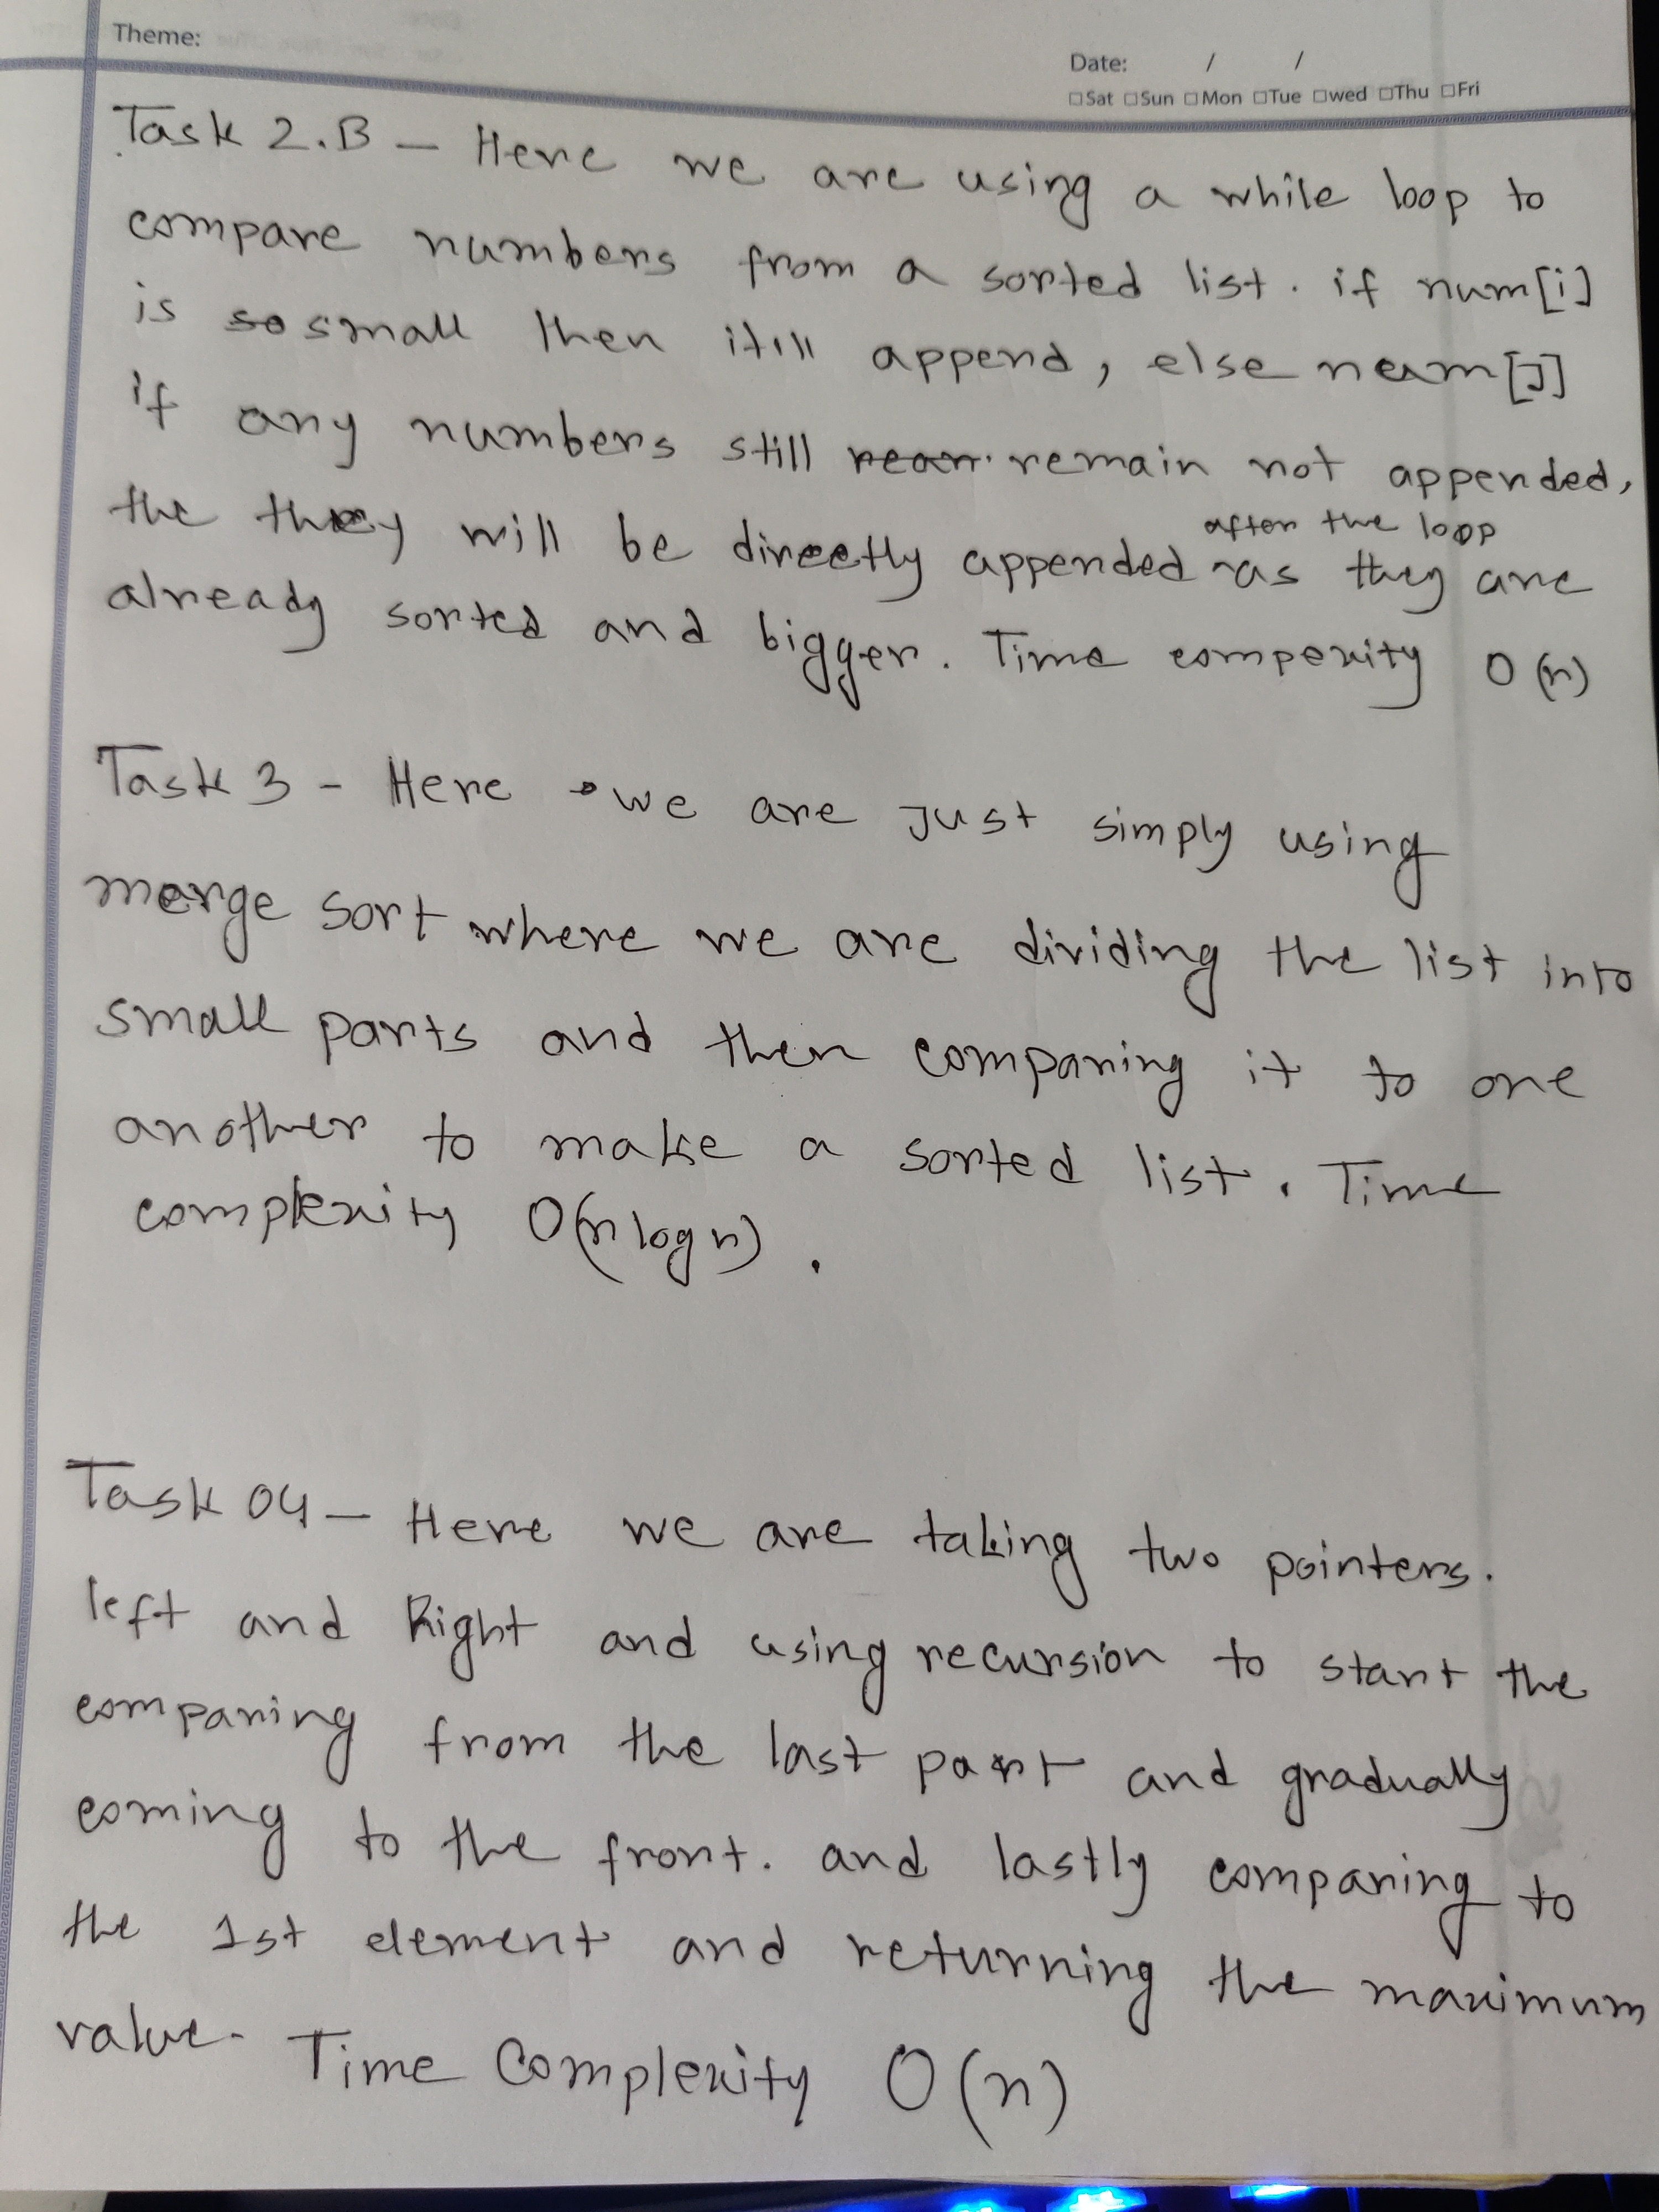 Theme:
Date: / /
□Sat □Sun □Mon □Tue □wed □Thu □Fri
Task 2.B – Here we are using a while loop to
compare numbers from a sorted list. if num[i]
is so small then itill append, else num[J]
if any numbers still remain not appended,
the they will be directly appended after the loop as they are
already sorted and bigger. Time compexity O(n)
Task 3 - Here we are Just simply using
merge sort where we are dividing the list into
small parts and then comparing it to one
another to make a sorted list. Time
complexity O(n log n).
Task 04 – Here we are taking two pointers.
left and Right and using recursion to start the
comparing from the last part and gradually
coming to the front. and lastly comparing to
the 1st element and returning the maximum
value. Time Complexity O(n)